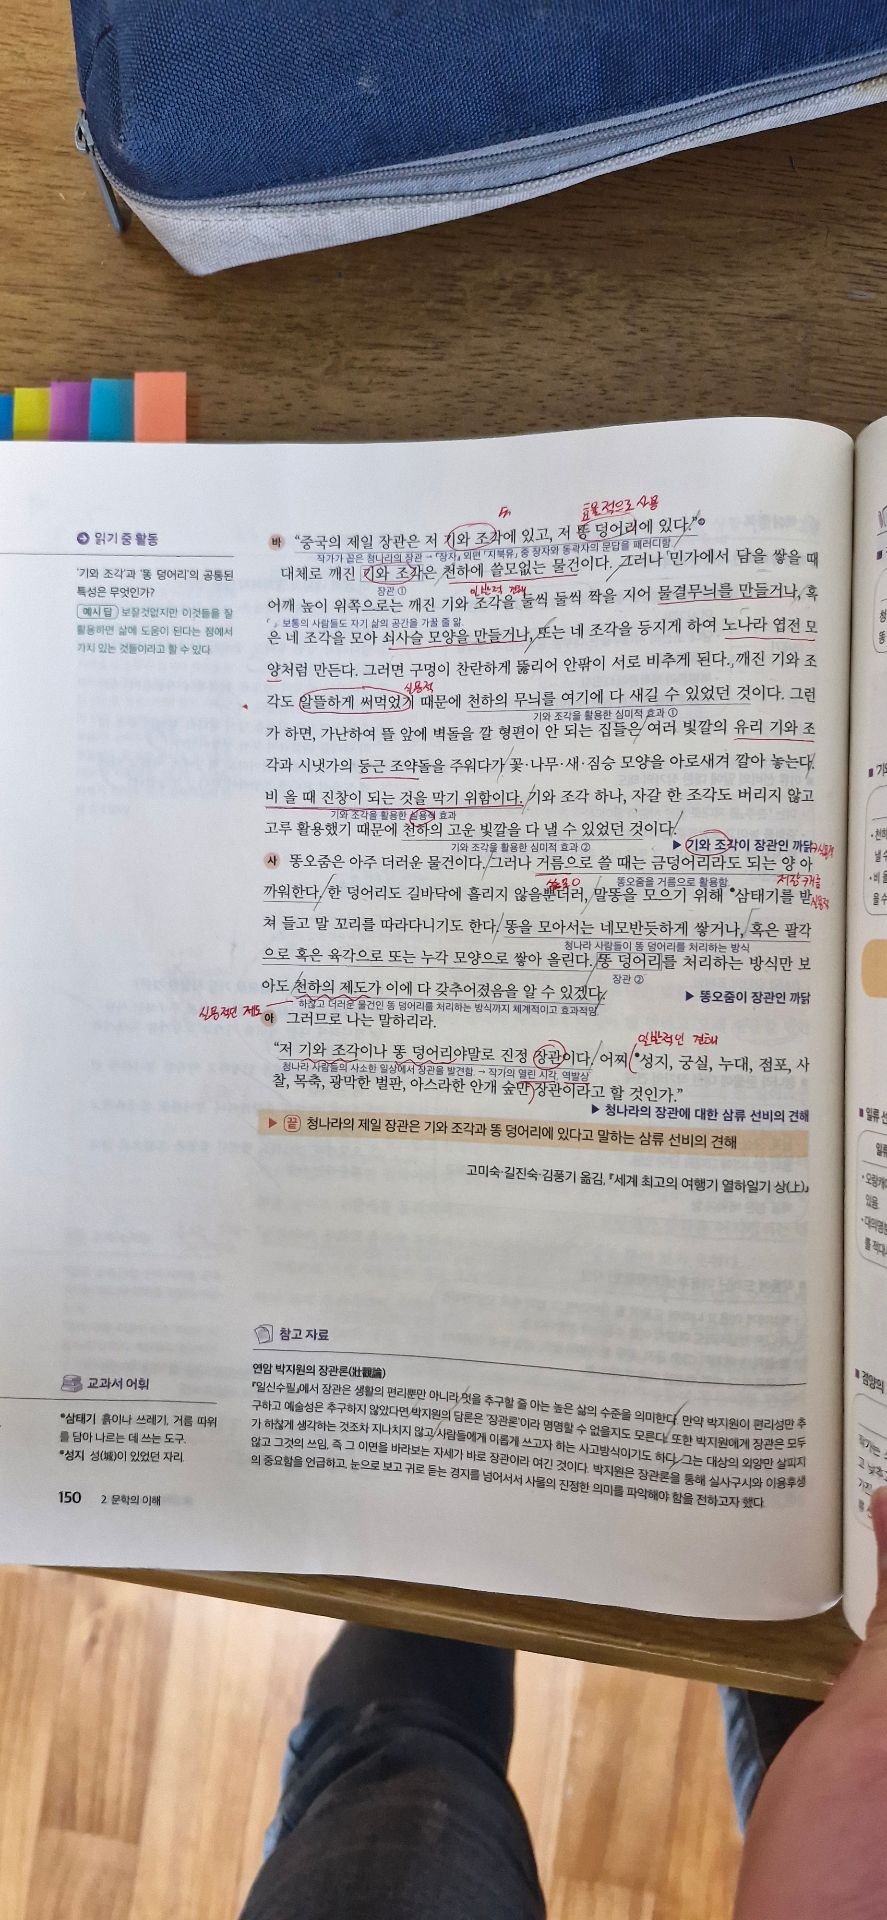 읽기 중 활동
'기와 조각'과 '똥 덩어리'의 공통된
특성은 무엇인가?
예시 답 보잘것없지만 이것들을 잘
활용하면 삶에 도움이 된다는 점에서
가치 있는 것들이라고 할 수 있다.
효율적으로 사용
바 "중국의 제일 장관은 저 기와 조각에 있고, 저 똥 덩어리에 있다."
작가가 꼽은 청나라의 장관 → 『장자』 외편 「지북유」 중 장자와 동곽자의 문답을 패러디함
대체로 깨진 기와 조각은 천하에 쓸모없는 물건이다. 그러나 「민가에서 담을 쌓을 때
장관 ① 일반적 견해
어깨 높이 위쪽으로는 깨진 기와 조각을 둘씩 둘씩 짝을 지어 물결무늬를 만들거나, 혹
「 」: 보통의 사람들도 자기 삶의 공간을 가꿀 줄 앎.
은 네 조각을 모아 쇠사슬 모양을 만들거나, 또는 네 조각을 등지게 하여 노나라 엽전 모
양처럼 만든다. 그러면 구멍이 찬란하게 뚫리어 안팎이 서로 비추게 된다. 깨진 기와 조
실용적
각도 알뜰하게 써먹었기 때문에 천하의 무늬를 여기에 다 새길 수 있었던 것이다. 그런
기와 조각을 활용한 심미적 효과 ①
가 하면, 가난하여 뜰 앞에 벽돌을 깔 형편이 안 되는 집들은 여러 빛깔의 유리 기와 조
각과 시냇가의 둥근 조약돌을 주워다가 꽃·나무·새·짐승 모양을 아로새겨 깔아 놓는다.
비 올 때 진창이 되는 것을 막기 위함이다. 기와 조각 하나, 자갈 한 조각도 버리지 않고
기와 조각을 활용한 실용적 효과
고루 활용했기 때문에 천하의 고운 빛깔을 다 낼 수 있었던 것이다.
기와 조각을 활용한 심미적 효과 ②
▶ 기와 조각이 장관인 까닭
사 똥오줌은 아주 더러운 물건이다. 그러나 거름으로 쓸 때는 금덩어리라도 되는 양 아
쓸모○ 똥오줌을 거름으로 활용함.
까워한다. 한 덩어리도 길바닥에 흘리지 않을뿐더러, 말똥을 모으기 위해 •삼태기를 받
실용적
쳐 들고 말 꼬리를 따라다니기도 한다. 똥을 모아서는 네모반듯하게 쌓거나, 혹은 팔각
청나라 사람들이 똥 덩어리를 처리하는 방식
으로 혹은 육각으로 또는 누각 모양으로 쌓아 올린다. 똥 덩어리를 처리하는 방식만 보
장관 ②
아도 천하의 제도가 이에 다 갖추어졌음을 알 수 있겠다.
하찮고 더러운 물건인 똥 덩어리를 처리하는 방식까지 체계적이고 효과적임.
▶ 똥오줌이 장관인 까닭
실용적인 제도
아 그러므로 나는 말하리라.
일반적인 견해
"저 기와 조각이나 똥 덩어리야말로 진정 장관이다. 어찌 •성지, 궁실, 누대, 점포, 사
청나라 사람들의 사소한 일상에서 장관을 발견함. → 작가의 열린 시각, 역발상
찰, 목축, 광막한 벌판, 아스라한 안개 숲만 장관이라고 할 것인가."
▶ 청나라의 장관에 대한 삼류 선비의 견해
▶ 끝 청나라의 제일 장관은 기와 조각과 똥 덩어리에 있다고 말하는 삼류 선비의 견해
고미숙·길진숙·김풍기 옮김, 『세계 최고의 여행기 열하일기 상(上)』
참고 자료
연암 박지원의 장관론(壯觀論)
『일신수필』에서 장관은 생활의 편리뿐만 아니라 멋을 추구할 줄 아는 높은 삶의 수준을 의미한다. 만약 박지원이 편리성만 추
구하고 예술성은 추구하지 않았다면 박지원의 담론은 '장관론'이라 명명할 수 없을지도 모른다. 또한 박지원에게 장관은 모두
가 하찮게 생각하는 것조차 지나치지 않고 사람들에게 이롭게 쓰고자 하는 사고방식이기도 하다. 그는 대상의 외양만 살피지
않고 그것의 쓰임, 즉 그 이면을 바라보는 자세가 바로 장관이라 여긴 것이다. 박지원은 장관론을 통해 실사구시와 이용후생
의 중요함을 언급하고, 눈으로 보고 귀로 듣는 경지를 넘어서서 사물의 진정한 의미를 파악해야 함을 전하고자 했다.
교과서 어휘
•삼태기 흙이나 쓰레기, 거름 따위
를 담아 나르는 데 쓰는 도구.
•성지 성(城)이 있었던 자리.
150 2. 문학의 이해